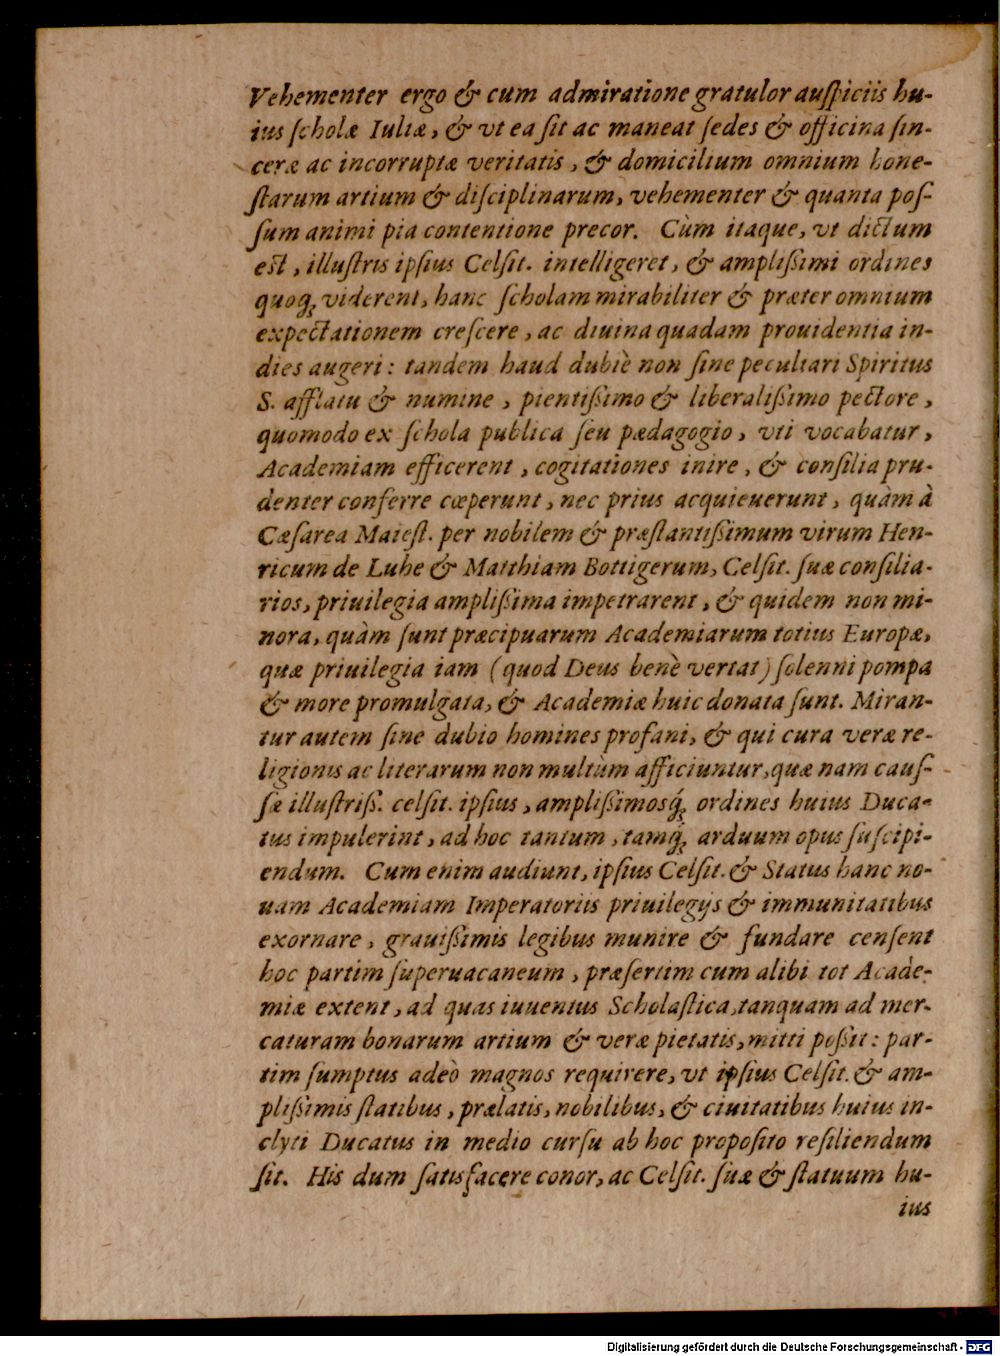 Vehementer ergo & cum admiratione gratulor auſpiciis hu-
ius ſcholæ Iuliæ, & vt ea ſit ac maneat ſedes & officina ſin-
ceræ ac incorruptæ veritatis, & domicilium omnium hone-
ſtarum artium & diſciplinarum, vehementer & quanta poſ-
ſum animi pia contentione precor. Cùm itaque, vt dictum
est, illuſtris ipſius Celſit. intelligeret, & ampliſſimi ordines
quoq́; viderent, hanc ſcholam mirabiliter & præter omnium
expectationem creſcere, ac diuina quadam prouidentia in-
dies augeri: tandem haud dubiè non ſine peculiari Spiritus
S. afflatu & numine, pientiſſimo & liberaliſſimo pectore,
quomodo ex ſchola publica ſeu pædagogio, vti vocabatur,
Academiam efficerent, cogitationes inire, & conſilia pru-
denter conferre cœperunt, nec prius acquieuerunt, quàm à
Cæſarea Maieſt. per nobilem & præſtantiſſimum virum Hen-
ricum de Luhe & Matthiam Bottigerum, Celſit. ſuæ conſilia-
rios, priuilegia ampliſſima impetrarent, & quidem non mi-
nora, quàm ſunt præcipuarum Academiarum totius Europæ,
quæ priuilegia iam (quod Deus benè vertat) ſolenni pompa
& more promulgata, & Academiæ huic donata ſunt. Miran-
tur autem ſine dubio homines profani, & qui cura veræ re-
ligionis ac literarum non multùm afficiuntur, quæ nam cauſ-
ſæ illuſtriſſ. celſit. ipſius, ampliſſimosq́; ordines huius Duca-
tus impulerint, ad hoc tantum, tamq́; arduum opus ſuſcipi-
endum. Cum enim audiunt, ipſius Celſit. & Status hanc no-
uam Academiam Imperatoriis priuilegijs & immunitatibus
exornare, grauiſſimis legibus munire & fundare cenſent
hoc partim ſuperuacaneum, præſertim cum alibi tot Acade-
miæ extent, ad quas iuuentus Scholaſtica, tanquam ad mer-
caturam bonarum artium & veræ pietatis, mitti poſſit: par-
tim ſumptus adeò magnos requirere, vt ipſius Celſit. & am-
pliſſimis ſtatibus, prælatis, nobilibus, & ciuitatibus huius in-
clyti Ducatus in medio curſu ab hoc propoſito reſiliendum
ſit. His dum ſatisfacere conor, ac Celſit. ſuæ & ſtatuum hu-
ius
Digitalisierung gefördert durch die Deutsche Forschungsgemeinschaft - DFG